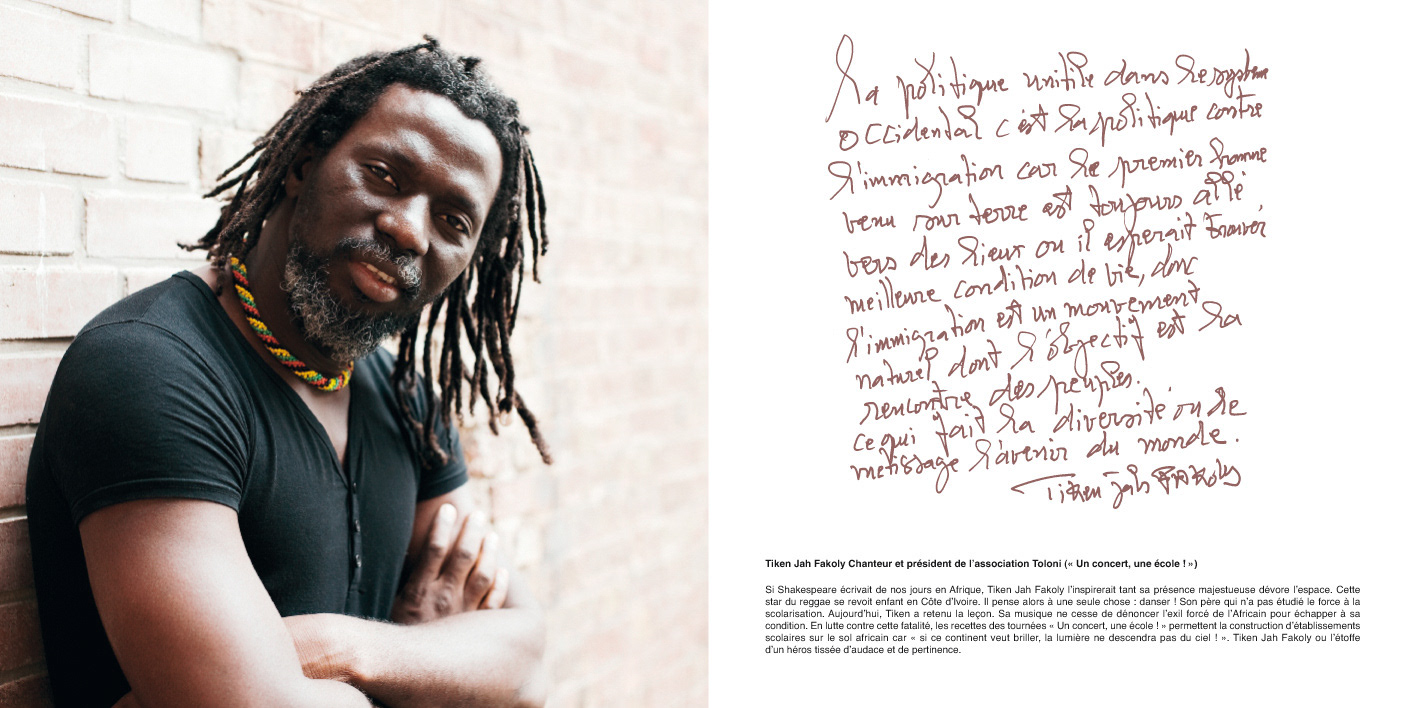 La politique unitile dans le system
occidental c'est la politique contre
l'immigration car le premier homme
venu sur terre est toujours allé
vers des lieux ou il esperait trouver
meilleure condition de vie, donc
l'immigration est un mouvement
naturel dont l'objectif est la
rencontre des peuples.
ce qui fait la diversité ou le
metissage l'avenir du monde.
Tiken Jah Fakoly
Tiken Jah Fakoly Chanteur et président de l'association Toloni (« Un concert, une école ! »)
Si Shakespeare écrivait de nos jours en Afrique, Tiken Jah Fakoly l'inspirerait tant sa présence majestueuse dévore l'espace. Cette
star du reggae se revoit enfant en Côte d'Ivoire. Il pense alors à une seule chose : danser ! Son père qui n'a pas étudié le force à la
scolarisation. Aujourd'hui, Tiken a retenu la leçon. Sa musique ne cesse de dénoncer l'exil forcé de l'Africain pour échapper à sa
condition. En lutte contre cette fatalité, les recettes des tournées « Un concert, une école ! » permettent la construction d'établissements
scolaires sur le sol africain car « si ce continent veut briller, la lumière ne descendra pas du ciel ! ». Tiken Jah Fakoly ou l'étoffe
d'un héros tissée d'audace et de pertinence.